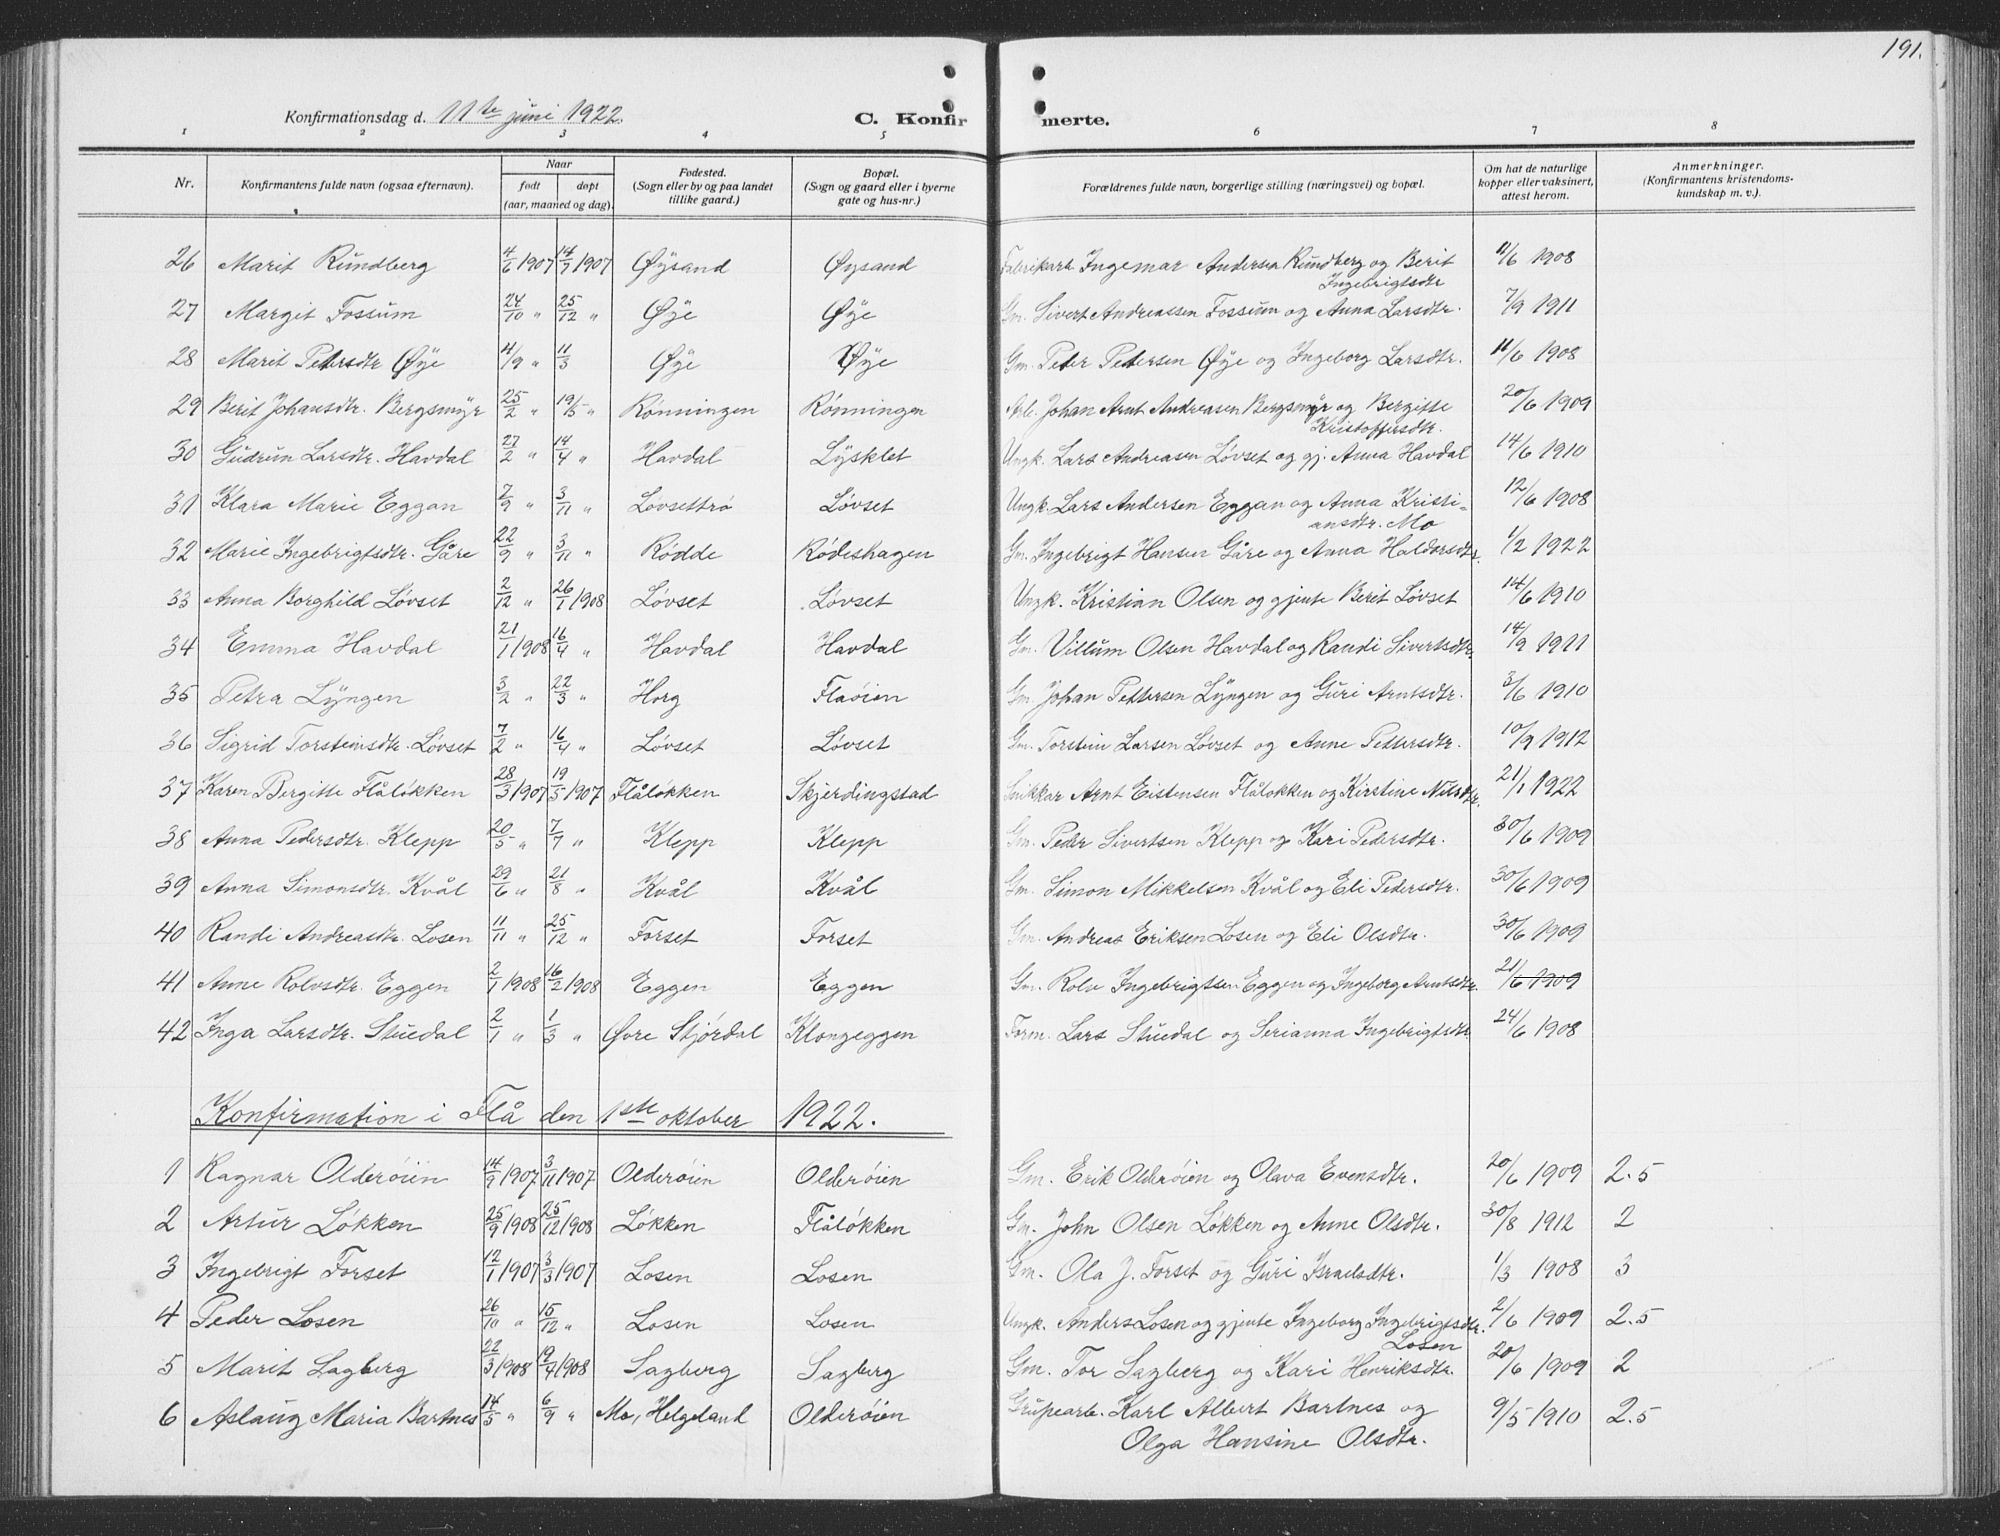 191.
Konfirmationsdag d. 11te juni 1922. C. Konfirmerte.
1 2 3 4 5 6 7 8
Nr. Konfirmantens fulde navn (ogsaa efternavn). Naar født døpt (aar, maaned og dag). Fødested. (Sogn eller by og paa landet tillike gaard.) Bopæl. (Sogn og gaard eller i byerne gate og hus-nr.) Forældrenes fulde navn, borgerlige stilling (næringsvei) og bopæl. Om hat de naturlige kopper eller vaksinert, attest herom. Anmerkninger. (Konfirmantens kristendoms-kundskap m. v.).
26 Marit Rundberg 4/6 1907 14/7 1907 Øysand Øysand Fabrikarb. Ingemar Andersen Rundberg og Berit Ingebrigtsdtr 11/6 1908
27 Margit Fossum 24/10 " 25/12 " Øye Øye Gm. Sivert Andreassen Fossum og Anna Larsdtr. 7/9 1911
28 Marit Petersdtr Øye 4/9 " 11/3 Øye Øye Gm. Peder Pedersen Øye og Ingeborg Larsdtr. 11/6 1908
29 Berit Johansdtr. Bergsmyr 25/2 " 19/5 " Rønningen Rønningen Arb. Johan Arnt Andreasen Bergsmyr og Bergitte Kristoffersdtr. 20/6 1909
30 Gudrun Larsdtr. Havdal 27/2 " 14/4 " Havdal Lysklet Ungk. Lars Andreasen Løvset og gj. Anna Havdal 14/6 1910
31 Klara Marie Eggan 7/9 " 3/11 " Løvsettrø Løvset Ungk. Lars Andersen Eggan og Anna Kristiansdtr. Mo 12/6 1908
32 Marie Ingebrigtsdtr. Gåre 22/9 " 3/11 " Rødde Rødeshagen Gm. Ingebrigt Hansen Gåre og Anna Haldorsdtr. 1/2 1922
33 Anna Borghild Løvset 2/12 " 26/1 1908 Løvset Løvset Ungk. Kristian Olsen og gjente Berit Løvset 14/6 1910
34 Emma Havdal 21/1 1908 16/4 " Havdal Havdal Gm. Villum Olsen Havdal og Randi Sivertsdtr. 14/9 1911
35 Petra Lyngen 3/2 " 22/3 " Horg Flaøien Gm. Johan Pettersen Lyngen og Guri Arntsdtr. 3/6 1910
36 Sigrid Torsteinsdtr. Løvset 7/2 " 16/4 " Løvset Løvset Gm. Torstein Larsen Løvset og Anne Pettersdtr. 10/9 1912
37 Karen Bergitte Flåløkken 28/3 1907 19/5 1907 Flåløkken Skjerdingstad Snikkar Arnt Eistensen Flåløkken og Kirstine Nilsdtr. 21/1 1922
38 Anna Pedersdtr. Klepp 20/5 " 7/7 " Klepp Klepp Gm. Peder Sivertsen Klepp og Kari Pedersdtr. 30/6 1909
39 Anna Simonsdtr. Kvål 29/6 " 21/8 " Kvål Kvål Gm. Simon Mikkelsen Kvål og Eli Pedersdtr. 30/6 1909
40 Randi Andreasdtr. Losen 11/11 " 25/12 " Forset Forset Gm. Andreas Eriksen Losen og Eli Olsdtr. 30/6 1909
41 Anne Rolvsdtr. Eggen 2/1 1908 16/2 1908 Eggen Eggen Gm. Rolv Ingebrigtsen Eggen og Ingeborg Arntsdtr. 21/6 1909
42 Inga Larsdtr. Stuedal 2/1 " 1/3 " Øvre Stjørdal Klongeggen Form. Lars Stuedal og Serianna Ingebrigtsdtr. 24/6 1908
Konfirmation i Flå den 1ste oktober 1922.
1 Ragnar Olderøien 14/9 1907 3/11 1907 Olderøien Olderøien Gm. Erik Olderøien og Olava Evensdtr. 20/6 1909 2.5
2 Artur Løkken 25/9 1908 25/12 1908 Løkken Flåløkken Gm. John Olsen Løkken og Anne Olsdtr. 30/8 1912 2
3 Ingebrigt Forset 12/1 1907 3/3 1907 Losen Losen Gm. Ola J. Forset og Guri Israelsdtr. 1/3 1908 3
4 Peder Losen 26/10 " 15/12 " Losen Losen Ungk. Anders Losen og gjente Ingeborg Ingebrigtsdtr. Losen 2/6 1909 2.5
5 Marit Sagberg 22/3 1908 19/4 1908 Sagberg Sagberg Gm. Tor Sagberg og Kari Henriksdtr. 20/6 1909 2
6 Aslaug Maria Bartnes 14/5 " 6/9 " Mo, Helgeland Olderøien Grubearb. Karl Albert Bartnes og Olga Hansine Olsdtr. 9/5 1910 2.5